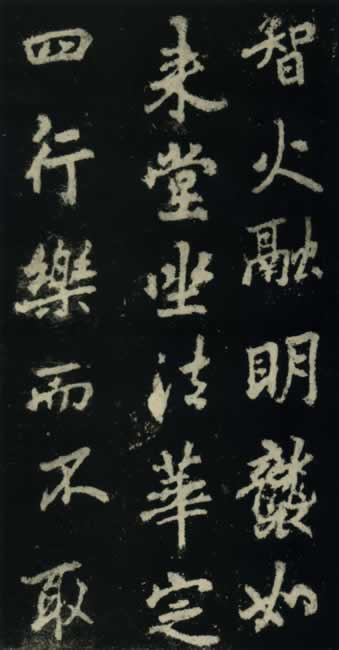 智火融明襲如
来堂坐法華定
四行樂而不取